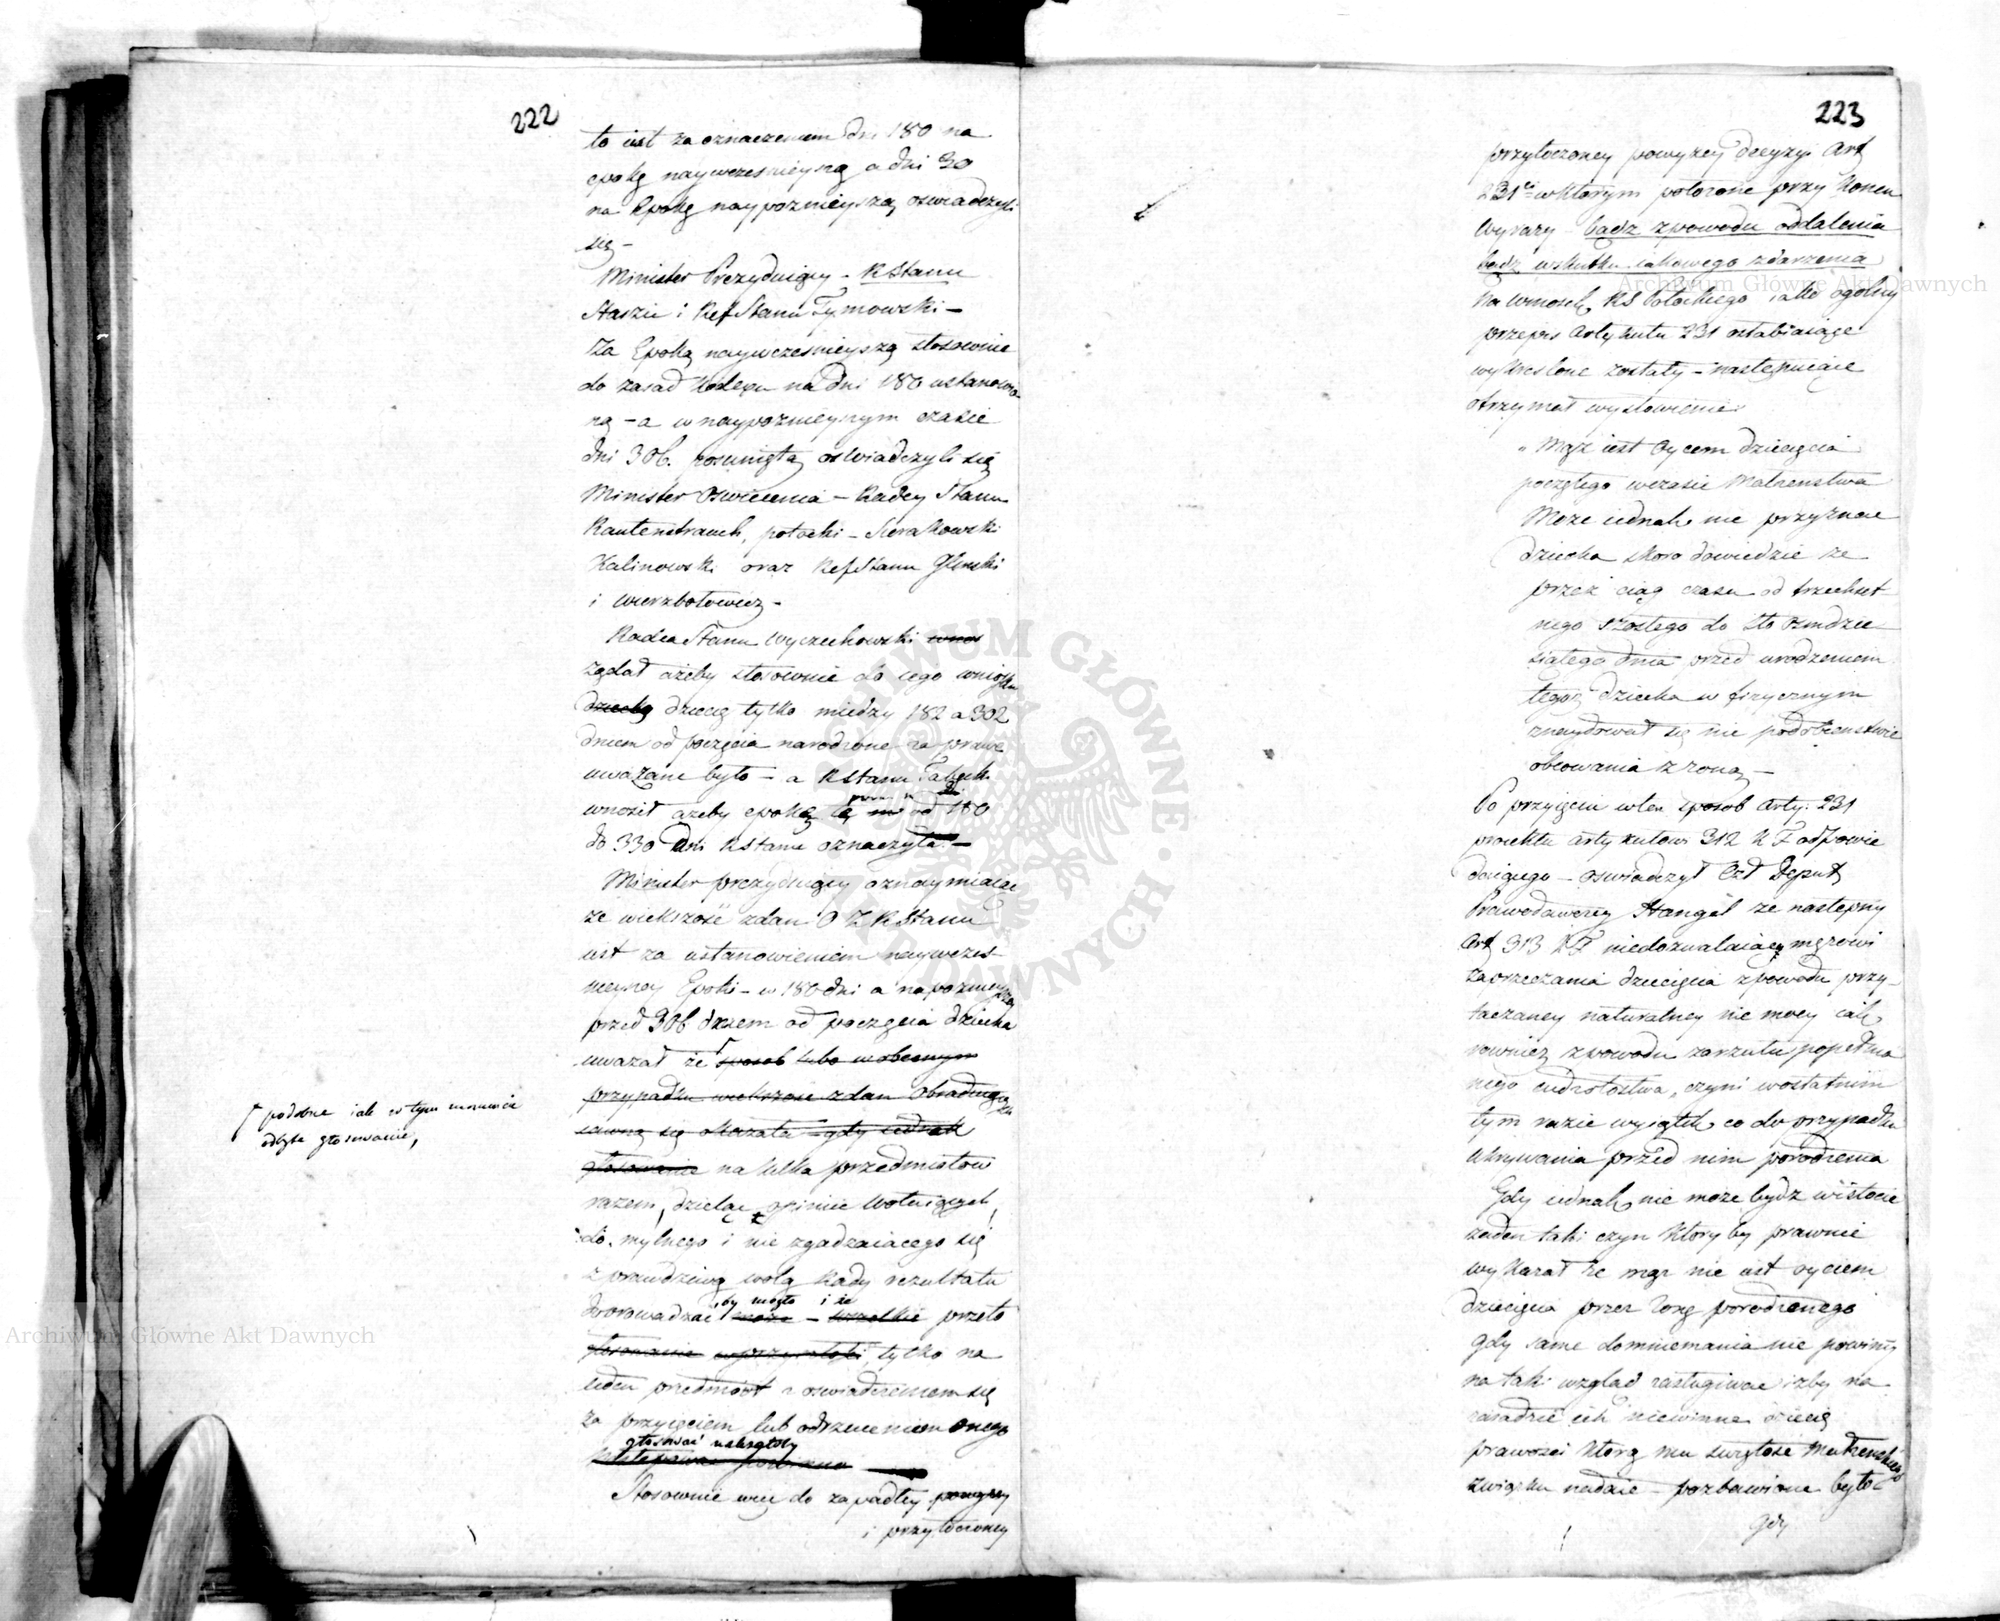 222
to iest za oznaczeniem dni 180 na
epokę naywczesnieyszą a dni 30
na Epokę naypoznieyszą oswiadczyli
się –
Minister Prezyduiący – RStanu
Staszic i RefStanu Tymowski –
Za Epoką naywczesnieyszą stosownie
do zasad Kodexu na dni 180 ustanowio
ną – a w naypoznieyszym czasie
dni 306. posuniętą oswiadczyli się
Minister Oswiecenia – Radcy Stanu
Rautenstrauch, Potocki – Sierakowski
Kalinowski oraz RefStanu Glinski
i Wierzbołowicz –
Radca Stanu Wyczechowski wnos
żądał ażeby stosownie do iego wniosku
dziecko dziecię tylko między 182 a 302
dniem od poczęcia narodzone za prawe
uważane było – a RStanu
wnosił ażeby epokę tę od 180
do 330 dni RStanu oznaczyła –
Minister prezyduiący oznaymiaiąc
że większość zdań O Z RStanu
iest za ustanowieniem naywczes-
nieyszey Epoki – w 180 dni a napoznieyszey
przed 306 dniem od poczęcia dziecka
uważał że sposob lubo w obecnym
przypadku większosc zdan Obraduiących
iawną się okazała – gdy iednak
głosowanie na kilka przedmiotow
razem, dzieląc opinie wotuiących,
do mylnego i nie zgadzaiącego się
z prawdziwą wolą Rady rezultatu
by mogło i że
doprowadzać może – wszelkie przeto
głosowanie w przyszłości tylko na
ieden przedmiot z oswiadczeniem się
za przyięciem lub odrzuceniem onego
głosować należałoby
Stosownie więc do zapadłey powyzey
i przytoczoney
podobne iak w tym momencie
odbyte głosowanie,
223
przytoczoney powyzey decyzyi Art
231 w ktorym położone przy koncu
wyrazy bądz z powodu oddalenia
bądz w skutku iakowego zdarzenia
na wniosek RS Potockiego iako ogolny
przepis Artykułu 231 osłabiaiące
wykreslone zostały – następuiące
otrzymał wysłowienie:
„Mąż iest Oycem dziecięcia
poczętego w czasie Małżenstwa
Może iednak nie przyznac
dziecka skoro dowiedzie że
przez ciąg czasu od trzechset
nego szostego do sto osmdzie
siątego dnia przed urodzeniem
tegoż dziecka w fizycznym
znaydował się nie podobienstwie
obcowania z żoną –
Po przyięciu w ten sposob Arty: 231
proiektu artykułowi 312 K F odpowie
daiącego – oswiadczył Czł Deput.
Prawodawczey Hangel że następny
Art 313 K F niedozwalaiący mężowi
zaprzeczania dziecięcia z powodu przy-
taczaney naturalney nie mocy iak
rownież z powodu zarzutu popełnio
nego cudzołostwa, czyni w ostatnim
tym razie wyiątek co do przypadku
ukrywania przed nim porodzenia
Gdy iednak nie może bydz w istocie
żaden taki czyn ktory by prawnie
wykazał że mąż nie iest oycem
dziecięcia przez żonę porodzonego
gdy same domniemania nie powinny
na taki wzgląd zasługiwac iżby na
zasadzie ich niewinne dziecię
prawosci ktorą mu swiętosc Małżenskiego
związku nadaie – pozbawione było –
gdy
Archiwum Główne Akt Dawnych
Archiwum Główne Akt Dawnych
ARCHIWUM GŁÓWNE AKT DAWNYCH